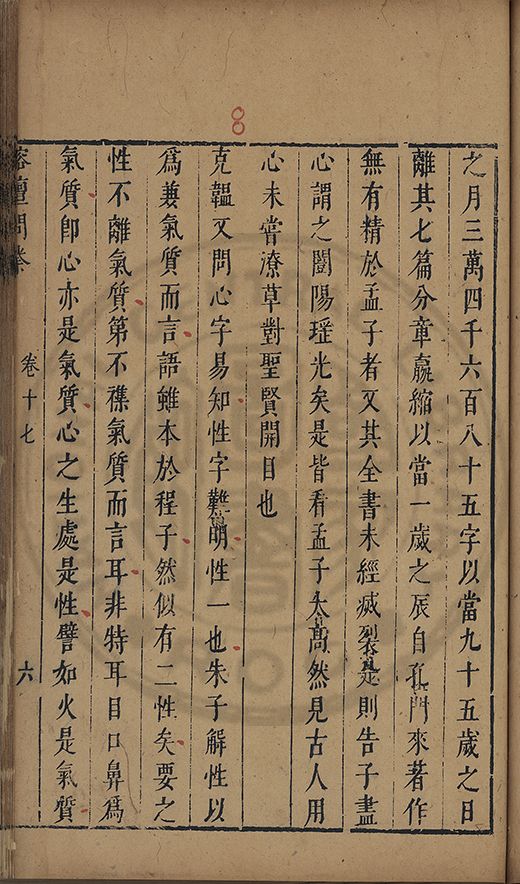 之月三萬四千六百八十五字以當九十五歲之日
離其七篇分章羸縮以當一歲之辰自孔門來著作
無有精於孟子者又其全書未經滅裂眞是則告子盡
心謂之闓陽瑶光矣是皆看孟子太眞高然見古人用
心未嘗潦草對聖賢開目也
克韞又問心字易知性字難眞明性一也朱子解性以
爲兼氣質而言語雖本於程子然似有二性矣要之
性不離氣質第不襍氣質而言耳非特耳目口鼻爲
氣質卽心亦是氣質心之生處是性譬如火是氣質
榕壇問業 卷十七 六